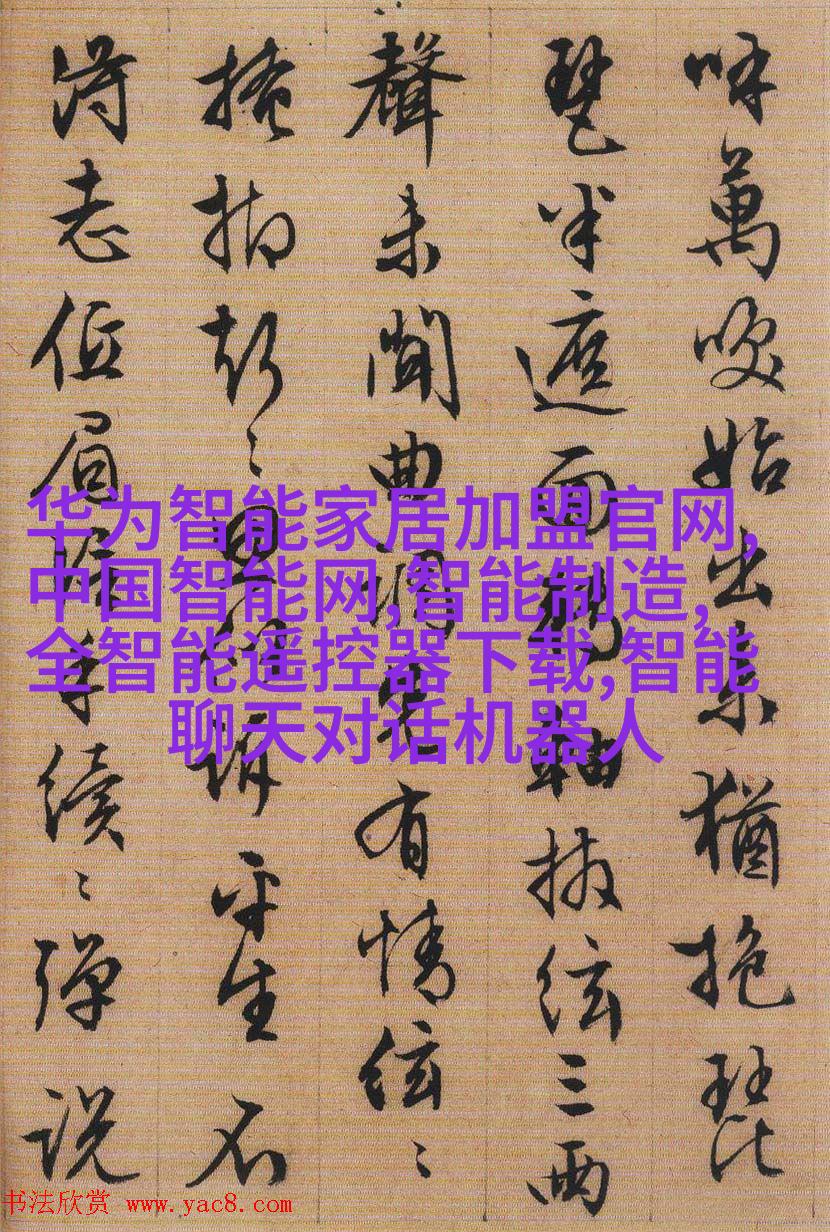 呼萬唤始出来猶抱琵
琶半遮面轉軸撥絃三两
聲未聞曲調先有情絃〻
掩抑声〻思似訴平生不
得志低眉信手續〻彈说
华为智能家居加盟官网,
中国智能网,智能制造,
全智能遥控器下载,智能
聊天对话机器人
书法欣赏 www.yac8.com